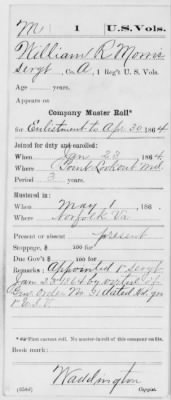 M | 1 | U.S. Vols.
William R Morris
Sergt, Co. A, 1 Reg't U. S. Vols.
Age years.
Appears on
Company Muster Roll*
for Enlistment to Apr 30, 1864
Joined for duty and enrolled:
When Jan 23, 1864
Where Point Lookout Md
Period 3 years.
Mustered in:
When May 1, 186
Where Norfolk Va
Present or absent present
Stoppage, $ 100 for
Due Gov't $ 100 for
Remarks: Appointed Sergt
Jan 23 1864 by virtue of
Order No dated Hd qrs
*First current roll. No muster-in roll of this company on file.
Book mark:
Waddington
(656d) Copyist.